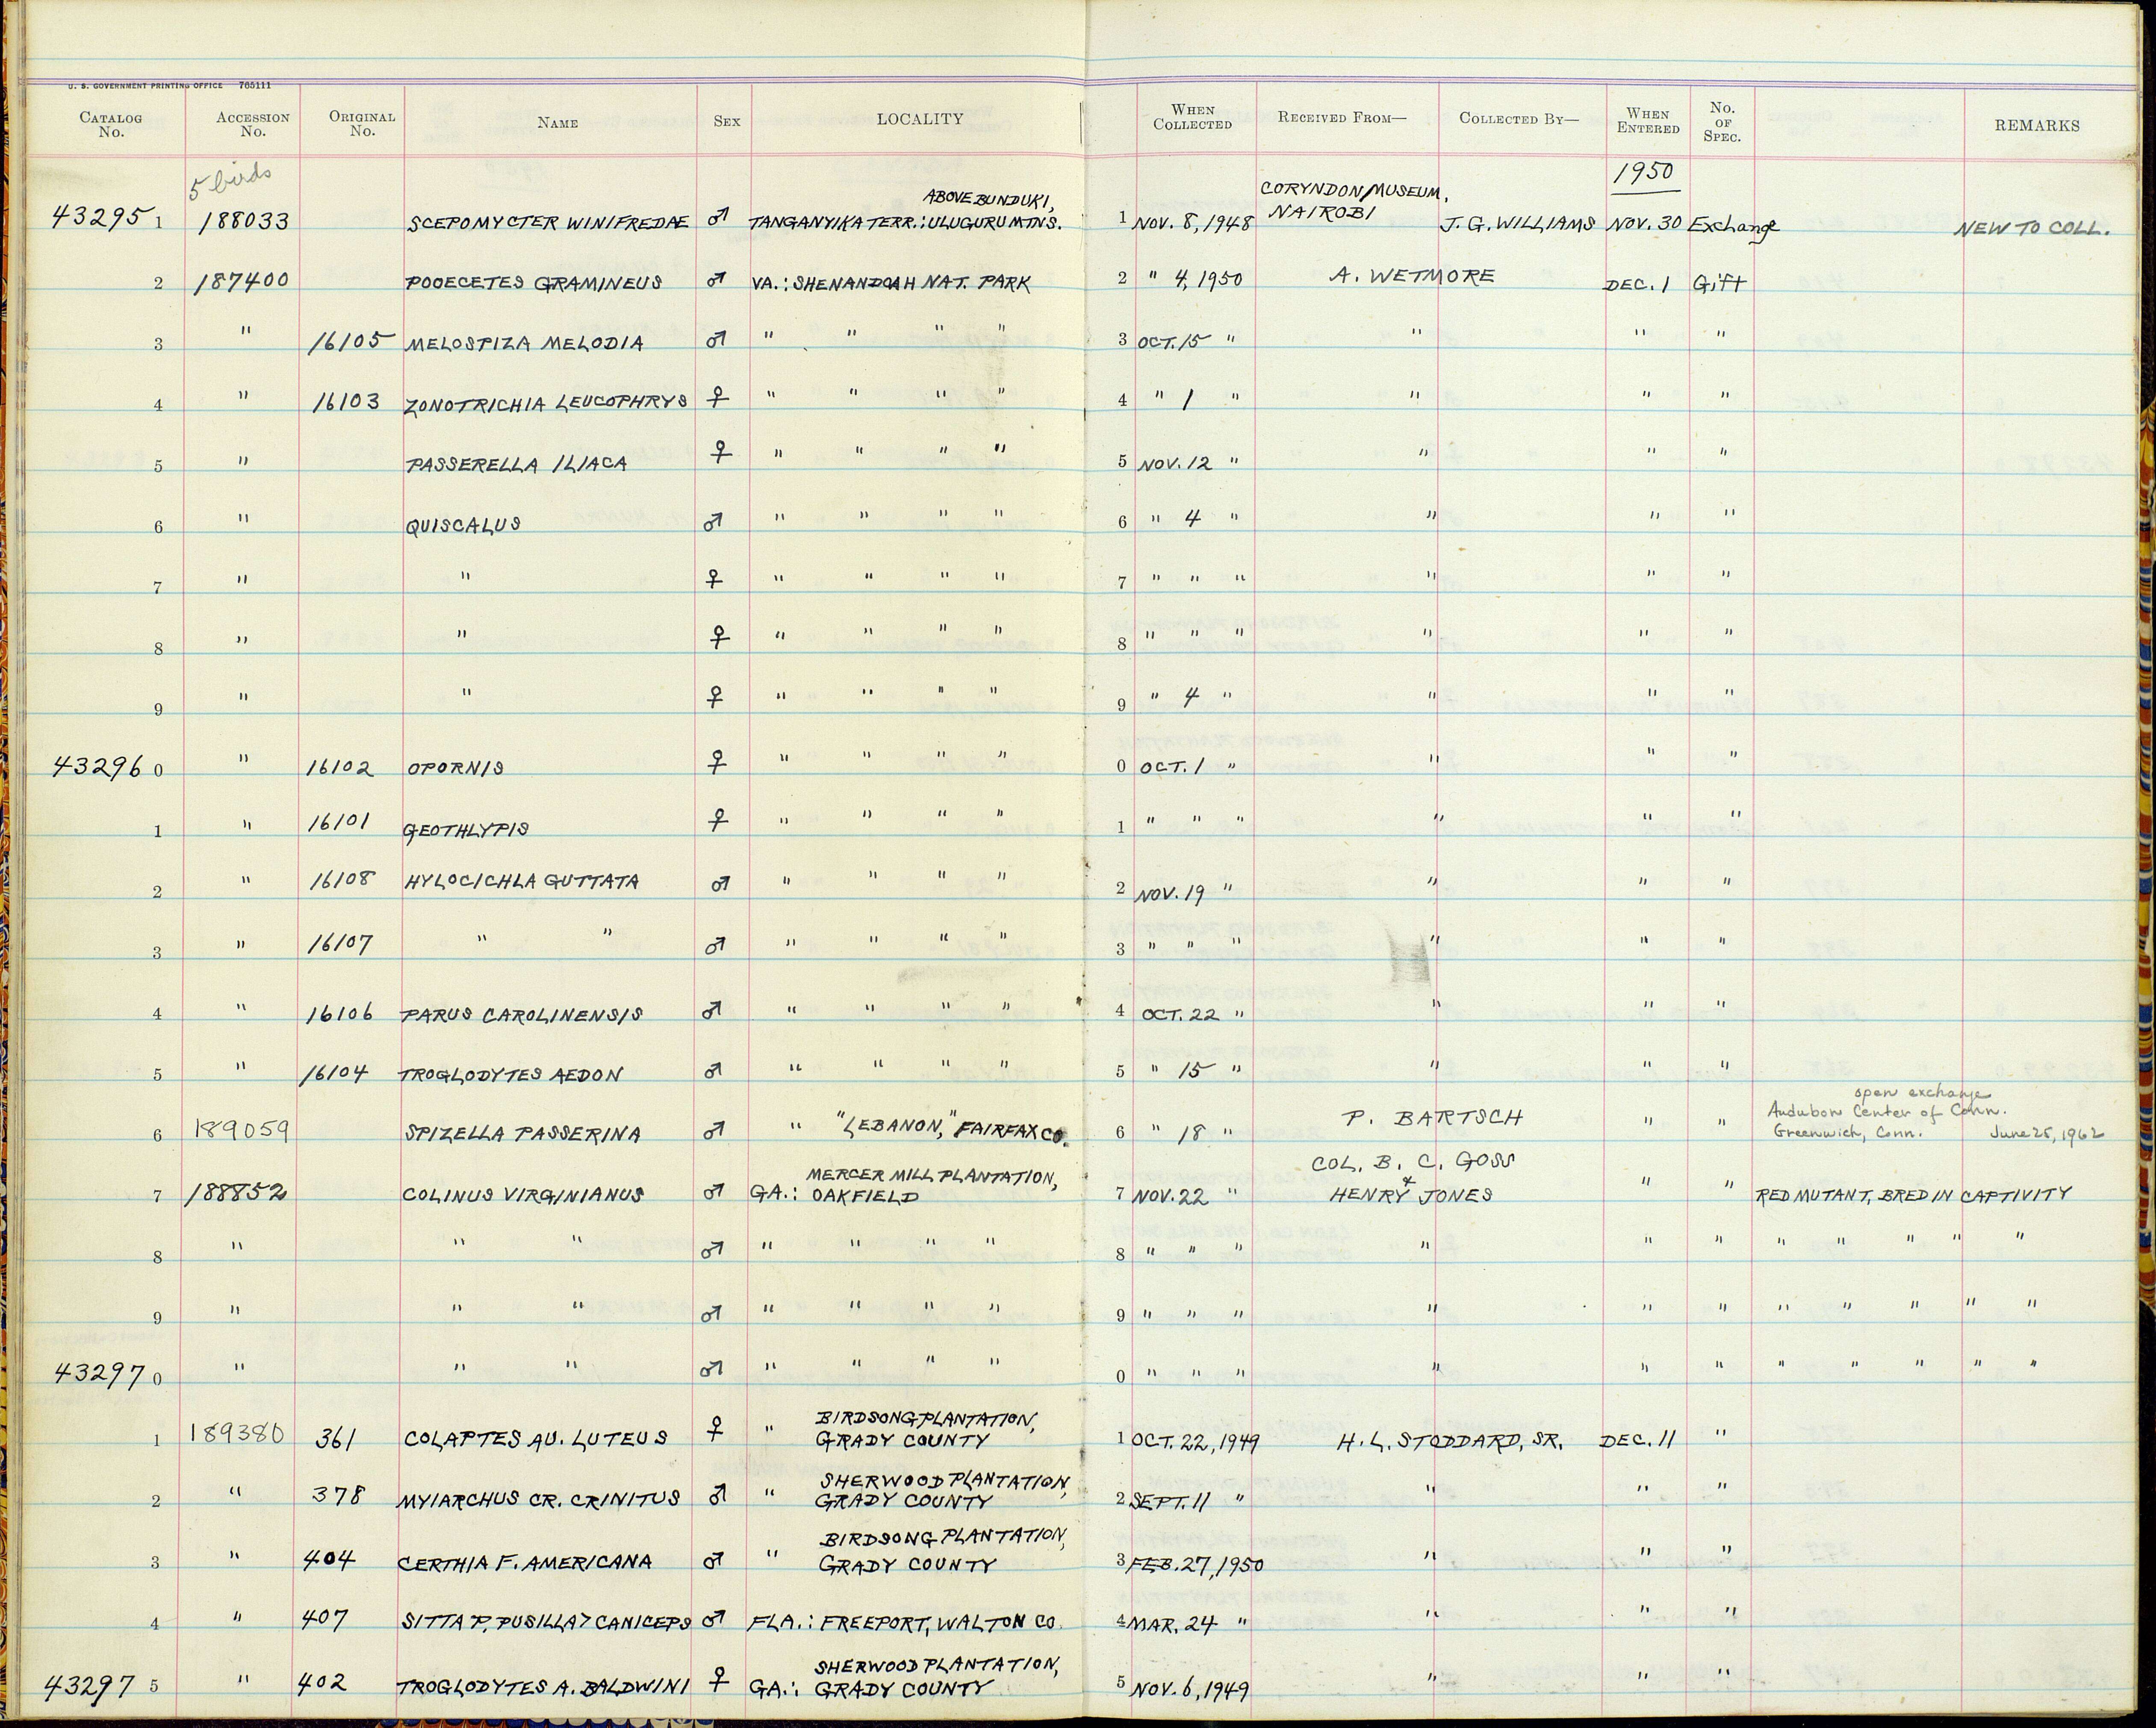 U. S. GOVERNMENT PRINTING OFFICE 765111
CATALOG No. ACCESSION No. ORIGINAL No. NAME SEX LOCALITY WHEN COLLECTED RECEIVED FROM— COLLECTED BY— WHEN ENTERED No. OF SPEC. REMARKS
5 birds 1950
ABOVE BUNDUKI, CORYNDON MUSEUM,
43295 1 188033 SCEPOMYCTER WINIFREDAE ♂ TANGANYIKA TERR.: ULUGURU MTNS. 1 NOV. 8, 1948 NAIROBI J. G. WILLIAMS NOV. 30 Exchange NEW TO COLL.
2 187400 POOECETES GRAMINEUS ♂ VA.: SHENANDOAH NAT. PARK 2 " 4, 1950 A. WETMORE DEC. 1 Gift
3 " 16105 MELOSPIZA MELODIA ♂ " " " " 3 OCT. 15 " " " "
4 " 16103 ZONOTRICHIA LEUCOPHRYS ♀ " " " " 4 " 1 " " " "
5 " PASSERELLA ILIACA ♀ " " " " 5 NOV. 12 " " " "
6 " QUISCALUS ♂ " " " " 6 " 4 " " " "
7 " " ♀ " " " " 7 " " " " " "
8 " " ♀ " " " " 8 " " " " " "
9 " " ♀ " " " " 9 " 4 " " " "
43296 0 " 16102 OPORNIS ♀ " " " " 0 OCT. 1 " " " "
1 " 16101 GEOTHLYPIS ♀ " " " " 1 " " " " " "
2 " 16108 HYLOCICHLA GUTTATA ♂ " " " " 2 NOV. 19 " " " "
3 " 16107 " " ♂ " " " " 3 " " " " " "
4 " 16106 PARUS CAROLINENSIS ♂ " " " " 4 OCT. 22 " " " "
5 " 16104 TROGLODYTES AEDON ♂ " " " " 5 " 15 " " " "
open exchange
Audubon Center of Conn.
6 189059 SPIZELLA PASSERINA ♂ " "LEBANON," FAIRFAX CO. 6 " 18 " P. BARTSCH " " Greenwich, Conn. June 25, 1962
MERCER MILL PLANTATION, COL. B. C. GOSS
7 188852 COLINUS VIRGINIANUS ♂ GA.: OAKFIELD 7 NOV. 22 " & HENRY JONES " " RED MUTANT, BRED IN CAPTIVITY
8 " " " ♂ " " " " 8 " " " " " " " " " " "
9 " " " ♂ " " " " 9 " " " " " " " " " " "
43297 0 " " " ♂ " " " " 0 " " " " " " " " " " "
BIRDSONG PLANTATION,
1 189380 361 COLAPTES AU. LUTEUS ♀ " GRADY COUNTY 1 OCT. 22, 1949 H. L. STODDARD, SR. DEC. 11 "
SHERWOOD PLANTATION,
2 " 378 MYIARCHUS CR. CRINITUS ♂ " GRADY COUNTY 2 SEPT. 11 " " " "
BIRDSONG PLANTATION,
3 " 404 CERTHIA F. AMERICANA ♂ " GRADY COUNTY 3 FEB. 27, 1950 " " "
4 " 407 SITTA P. PUSILLA > CANICEPS ♂ FLA.: FREEPORT, WALTON CO. 4 MAR. 24 " " " "
SHERWOOD PLANTATION,
43297 5 " 402 TROGLODYTES A. BALDWINI ♀ GA.: GRADY COUNTY 5 NOV. 6, 1949 " " "